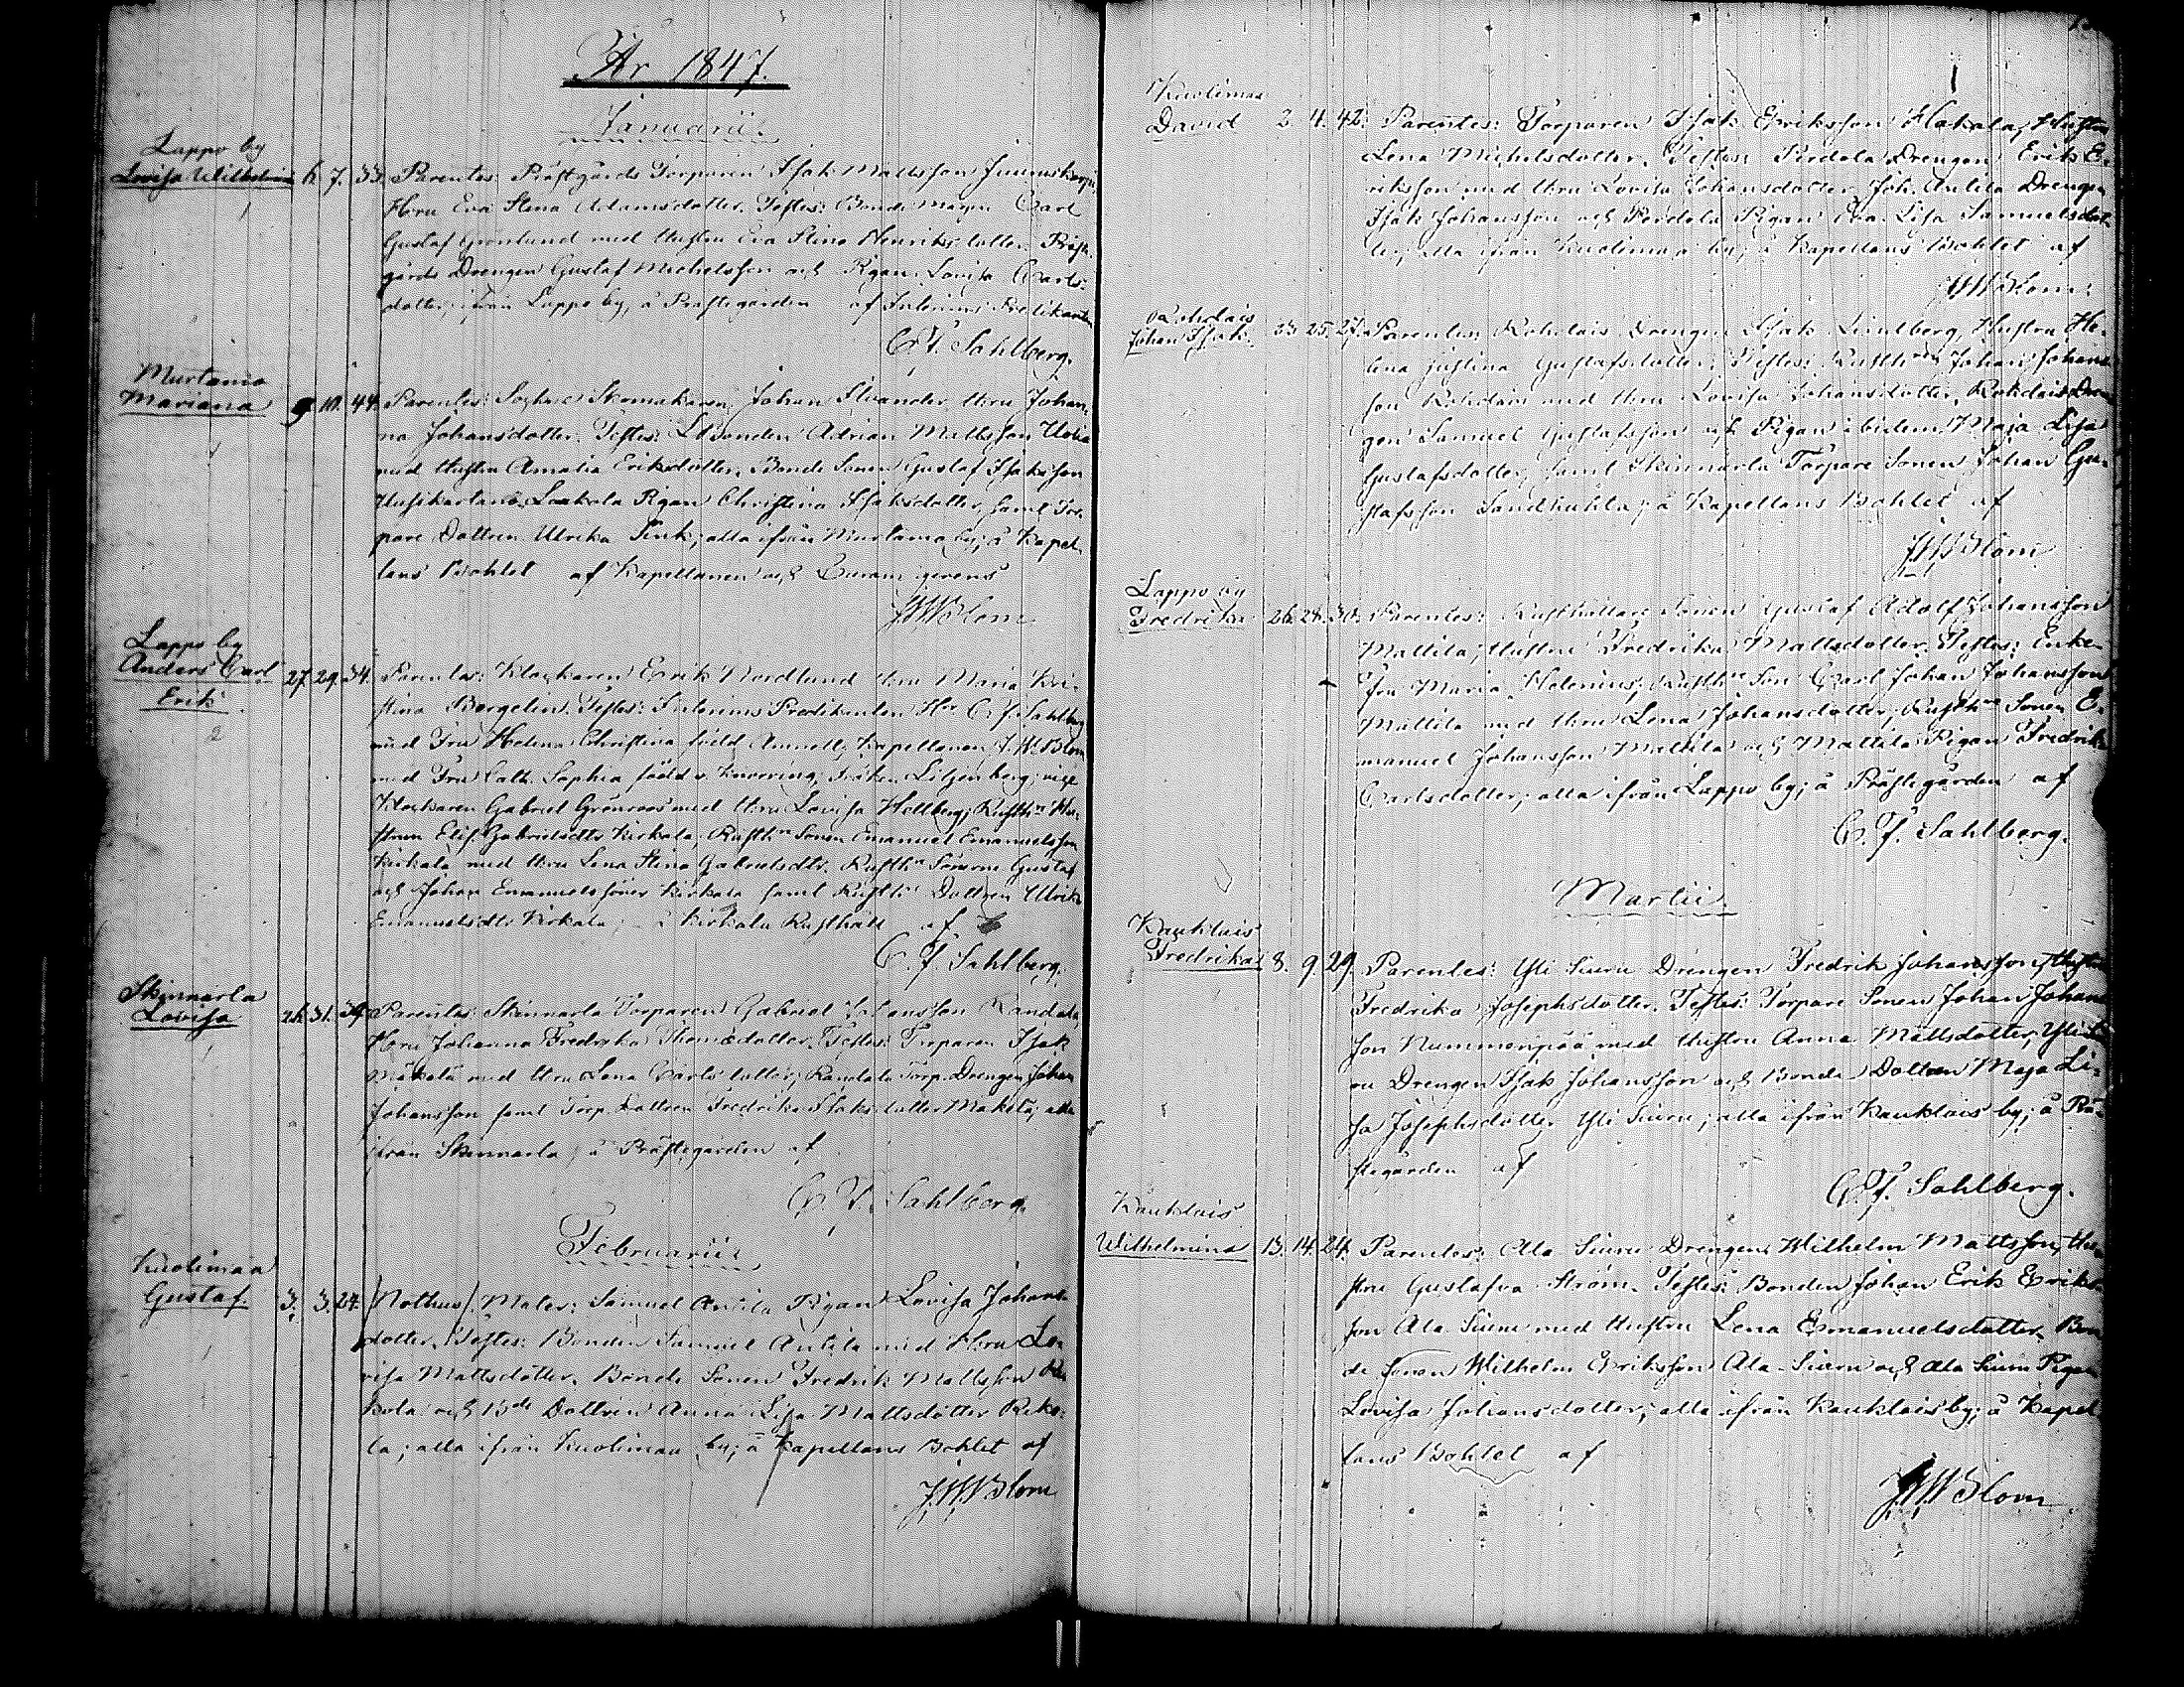 År 1847.
Januarii.
Lappo by
Lovisa Wilhelmina 6. 7. 33. Parentes: Prästgårds Torparen Isak Mattsson
Hsru Eva Stina Adamsdotter. Testes: Bonde Mågen Carl
Gustaf Grönlund med Hustru Eva Stina Henriksdotter. Präst-
gårds Drengen Gustaf Michelsson och Pigan Lovisa Carls-
dotter, ifrån Lappo by, å Prästegården af Interims Predikanten
C. F. Sahlberg.
Murtamo
Mariana 9. 10. 44. Parentes: Sockne Skomakaren Johan Elvander Hsru Johan-
na Johansdotter. Testes: Bonden Adrian Mattsson
med Hustru Amalia Eriksdotter. Bonde Sonen Gustaf Isaksson
Laukola Pigan Christina Isaksdotter, samt Tor-
pare Dottren Ulrika Fink; alla ifrån Murtamo by; å Kapel-
lans Bohlet af Kapellanen och Curam gerens
J. W. Blom
Lappo by
Anders Carl 27. 29. 34. Parentes: Klockaren Erik Nordlund Hsru Maria Kri-
Erik
2
stina Bergelin. Testes: Interims Predikanten Hr C. F. Sahlberg
med Fru Helena Christina född Kapellanen J. W. Blom
med Fru Cath. Sophia född v. Knorring, Fröken Liljenberg; vice
Klockaren Gabriel Grönroos med Hsru Lovisa Hellberg; Rusth:e Hu-
strun Elis. Gabrielsdtr Kirkola, Rusth:e Sonen Emanuel Emanuelsson
Kirkola med Hsru Lena Stina Gabrielsdtr. Rusth:e Sönerne Gustaf
och Johan Emanuelssöner Kirkola samt Rusth:e Dottren Ulrika
Emanuelsdtr Kirkola; å Kirkola Rusthåll af
C. F. Sahlberg.
Skinnarla
Lovisa 26. 31. 39. Parentes: Skinnarla Torparen Gabriel Johansson Randala,
Hsru Johanna Fredrika Thomædotter. Testes: Torparen Isak
Mäkelä med Hsru Lena Carlsdotter; Randala Torp. Drengen Johan
Johansson samt Torp. Dottren Fredrika Isaksdotter Mäkelä; alla
ifrån Skinnarla; å Prästegården af
C. F. Sahlberg.
Februarii.
Kuolimaa
Gustaf 3. 3. 24. /Nothus/ Mater: Samuel Antila Pigan Lovisa Johans-
dotter. Testes: Bonden Samuel Antila med Hsru Lo-
visa Mattsdotter. Bonde Sonen Fredrik Mattsson
kola och Bde Dottren Anna Lisa Mattsdotter
la; alla ifrån Kuolimaa by; å Kapellans Bohlet af
J. W. Blom
1
Kuolimaa
David 2. 4. 42. Parentes: Torparen Isak Eriksson Hakala, Hustru
Lena Michelsdotter. Testes: Perdola Drengen Erik E-
riksson med Hsru Lovisa Johansdotter, Joh. Antila Drengen
Isak Johansson och Perdola Pigan Eva Lisa Samuelsdot-
ter; alla ifrån Kuolimaa by; å Kapellans Bohlet af
J. W. Blom
Rohdais
Johan Isak 23. 25. 27. Parentes: Rohdais Drengen Isak Lindberg, Hustru He-
lena Justina Gustafsdotter. Testes: Rusth:en Johan Johans-
son Rohdais med Hsru Lovisa Johansdotter, Rohdais Dren-
gen Samuel Gustafsson och Pigan ibidem Maja Lisa
Gustafsdotter, samt Skinnarla Torpare Sonen Johan Gu-
stafsson Sandkuhla; å Kapellans Bohlet af
J. W. Blom
Lappo by
Fredrika 26. 28. 30. Parentes: Rusthållare Sonen Gustaf Adolf Johansson
Mattila, Hustru Fredrika Mattsdotter. Testes: Enke-
Fru Maria Helenius, Rusth:e Son Carl Johan Johansson
Mattila med Hsru Lena Johansdotter, Rusth:e Sonen E-
manuel Johansson Mattila och Mattila Pigan Fredrika
Carlsdotter; alla ifrån Lappo by; å Prästegården af
C. F. Sahlberg.
Martii
Kauklais
Fredrika 8. 9. 29. Parentes: Yli Siuru Drengen Fredrik Johansson, Hustru
Fredrika Josephsdotter. Testes: Torpare Sonen Johan Johans-
son Nummenpää med Hustru Anna Mattsdotter, Yli Siu-
ru Drengen Isak Johansson och Bonde Dottren Maja Li-
sa Josephsdotter Yli Siuru; alla ifrån Kauklais by; å Prä-
stegården af
C. F. Sahlberg.
Kauklais
Wilhelmina 13. 14. 24. Parentes: Ala Siuru Drengen Wilhelm Mattsson, Hu-
stru Gustafva Ström. Testes: Bonden Johan Erik Eriks-
son Ala Siuru med Hustru Lena Emanuelsdotter, Bon-
de Sonen Wilhelm Eriksson Ala Siuru och Ala Siuru Pigan
Lovisa Johansdotter; alla ifrån Kauklais by; å Kapel-
lans Bohlet af
J. W. Blom